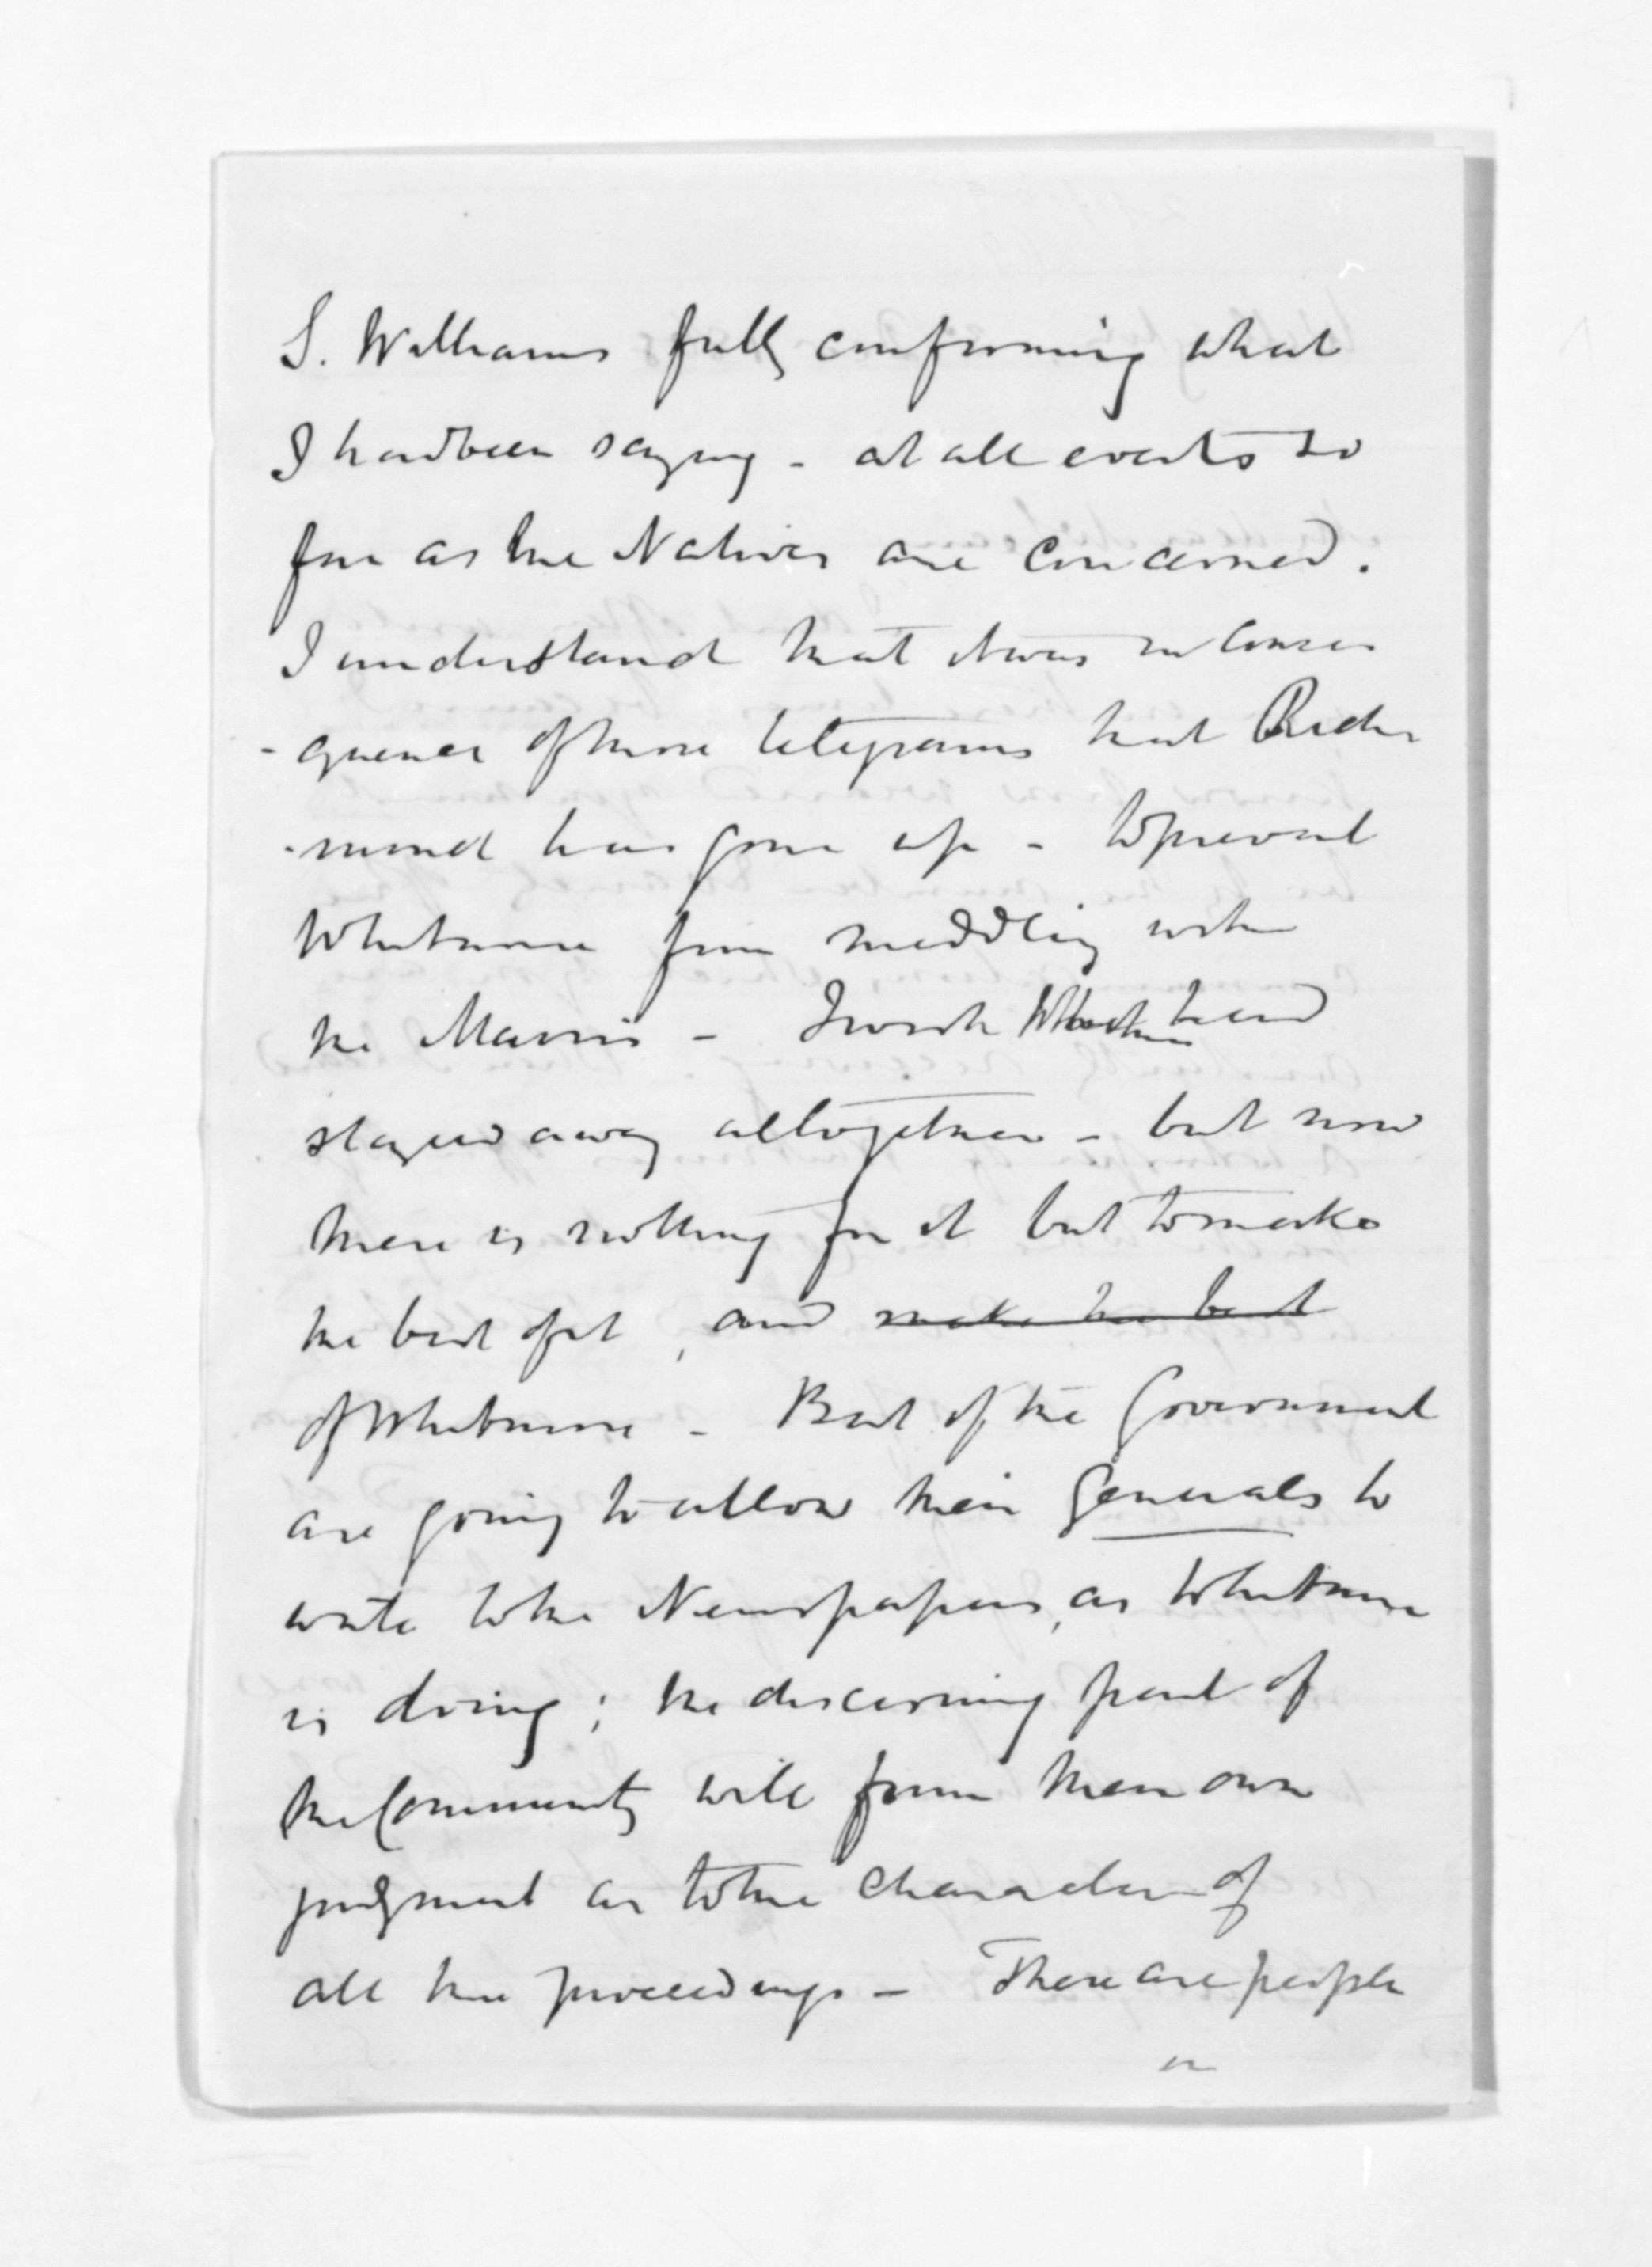 S. Williams fully confirming what
I had been saying - at all events so
far as the Natives are concerned.
I understand that it was in conse
- quence of these telegrams that Rich
- mond has gone up - to prevent
Whitmore from meddling with
the Maoris - I wish Whitmore had
stayed away altogether - but now
there is nothing for it but to make
the best of it, and make the best
of Whitmore - But if the Government
are going to allow their Generals to
write to the Newspapers, as Whitmore
is doing; the discerning part of
the Community will form their own
judgment as to the character of
all the proceedings - There are people